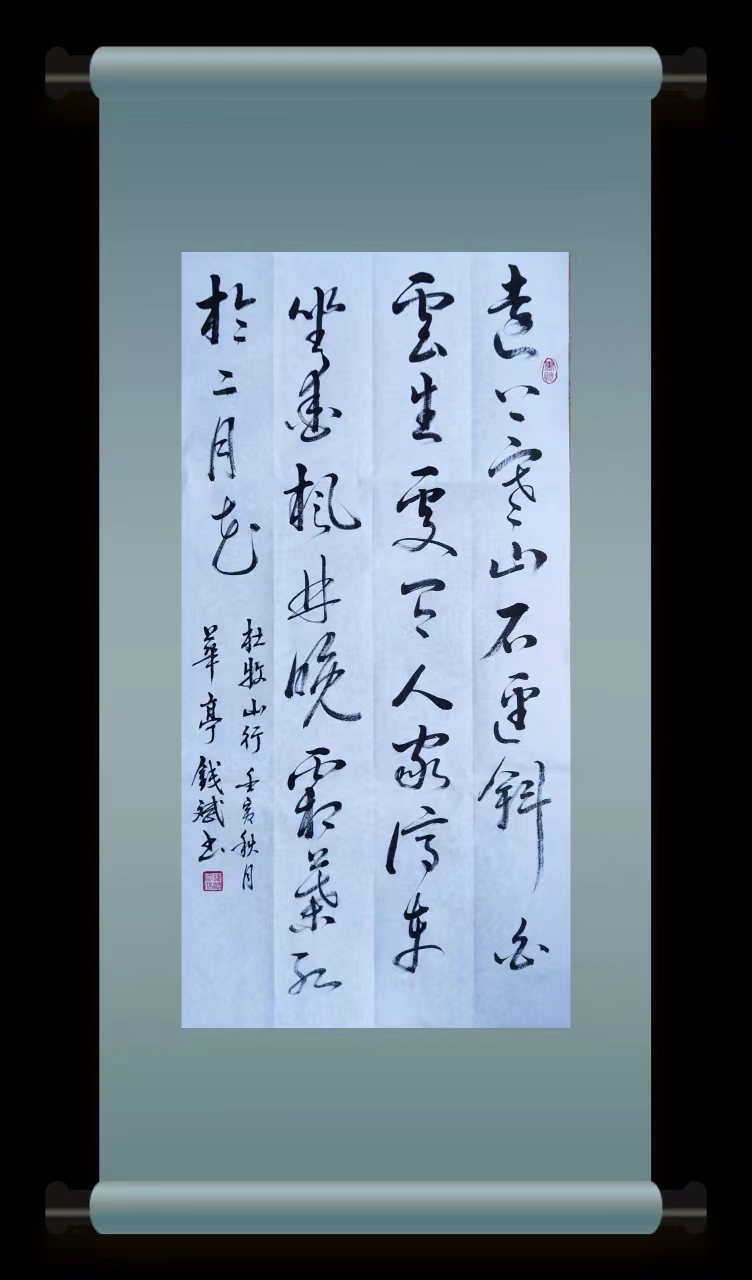 遠上寒山石逕斜白
雲生處有人家停車
坐愛楓林晚霜葉紅
於二月花
杜牧山行 壬寅秋月
華亭錢斌書